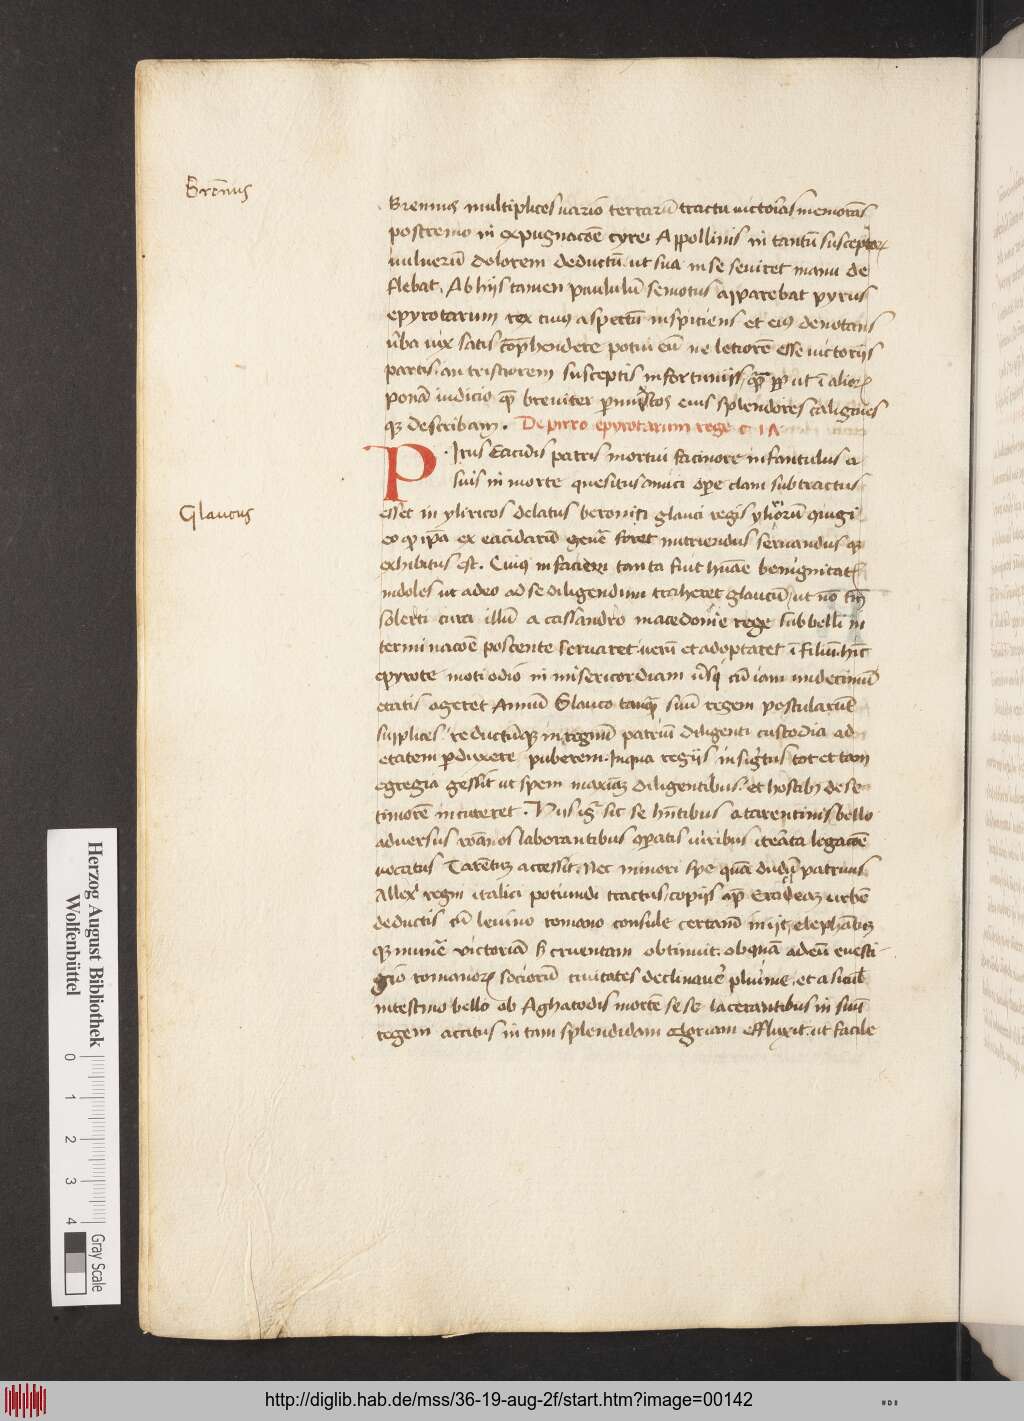 Brēnus
Brennus multiplices uario terrarū tractu uictoīas memorās
postremo in expugnacōe cyrei Appollinis in tantū susceptoꝝ
uulnerū dolorem deductū ut sua in se seuiret manu de
flebat. Ab hijs tamen paululū semotus apparebat pyrus
epyrotarum rex cuiꝰ aspectū inspiciens et eiꝰ denotans
ūba uix satis cōp̄hendere potui eū ne letiorē esse uictorijs
partis an tristiorem susceptis infortunijs, qᷓ ut ī alioꝝ
ponā iudicio qᷓ breuiter eius splendores caligīes
qꝫ describam. De pirro epyrotarum rege
Pirus Eacidis patris mortui facinore infantulus a
suis in morte quesitus amici oꝑe clam subtractus
Glaucus
esset in yliricos delatus glauci regis
eo qꝫ ip̄a ex eacidarū genē foret nutriendus seruandus qꝫ
exhibitus est. Cuiꝰ in faciem tanta fuit benignitatꝭ
indoles ut adeo ad se diligendum traheret glaucū, ut nō tm̄
solerti cura illū a cassandro macedonie rege sub belli in
terminacōe poscente seruaret uerū et adoptaret ī filiū. hīc
epyrote moti odio in misericordiam cū iam undecimū
etatis ageret Annū Glauco suū regem postularūt
supplices reductūqꝫ in regnū patriū diligenti custodia ad
etatem ꝑduxere puberem. In qua regijs insignitus tot et tam
egregia gessit ut spem maxiāꝫ diligentibus et hostibꝫ de se
timorē incuteret. sic se hn̄tibus a tarentinis bello
aduersus rōanos laborantibus uiribus legacōe
uocatus Tarētuꝫ accessit. Nec minori spe quā patruus
Allexͥ regni italici potiundi tractus, copijs urbē
deductis cū leuino romano consule certamē inijt, elephātuꝫ
qꝫ munē victoriā cruentam obtinuit. ob quā adeū euesti
gio romanoꝝ sociorū ciuitates declinauē plurime, et a sicul
intestino bello ob Aghatodis mortē sese lacerantibus in suū
regem accitus in tam splendidam gloriam effluxit ut facile
Herzog August Bibliothek
Wolfenbüttel
0 1 2 3 4
Gray Scale
http://diglib.hab.de/mss/36-19-aug-2f/start.htm?image=00142